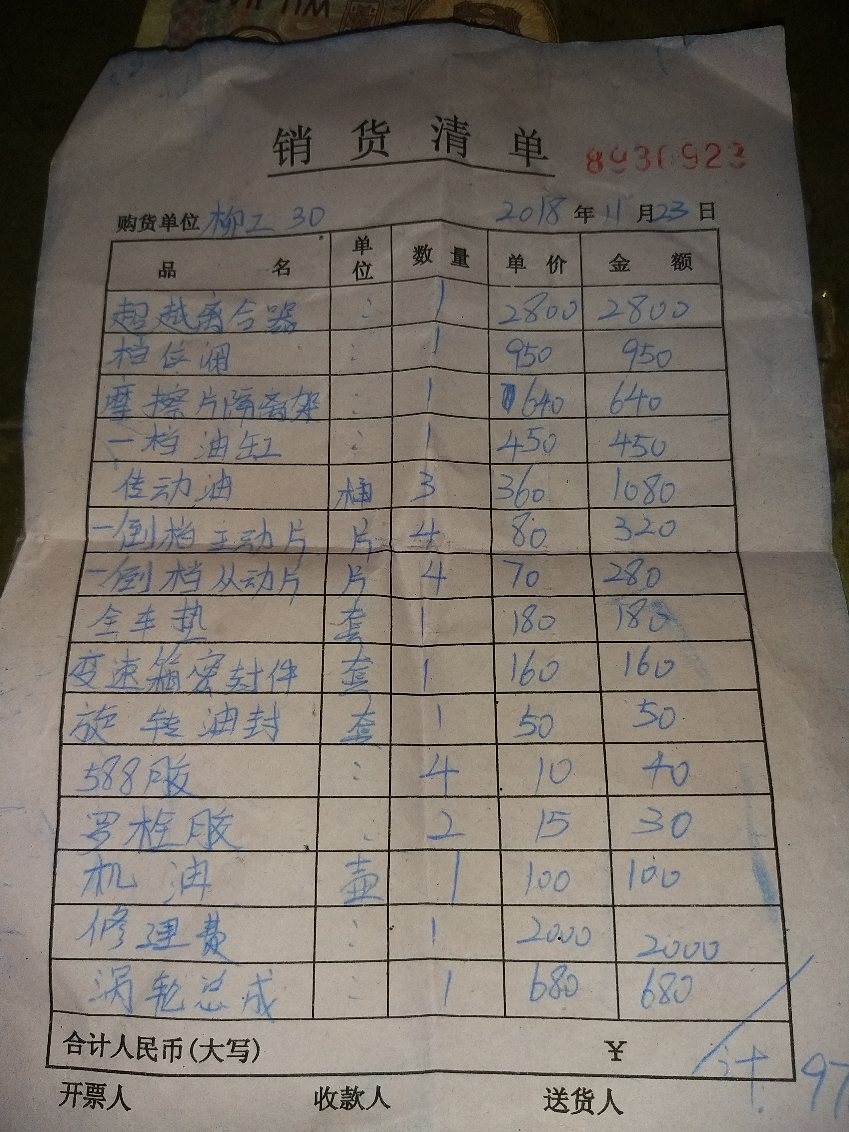 销货清单 8936923
购货单位 柳工30 2018年11月23日
品名 单位 数量 单价 金额
超越离合器 : 1 2800 2800
档位阀 : 1 950 950
摩擦片隔离架 : 1 640 640
一档油缸 : 1 450 450
传动油 桶 3 360 1080
一倒档主动片 片 4 80 320
一倒档从动片 片 4 70 280
全车垫 套 1 180 180
变速箱密封件 套 1 160 160
旋转油封 套 1 50 50
588胶 : 4 10 40
罗栓胶 : 2 15 30
机油 壶 1 100 100
修理费 : 1 2000 2000
涡轮总成 : 1 680 680
合计人民币(大写) ¥ 计.97
开票人 收款人 送货人